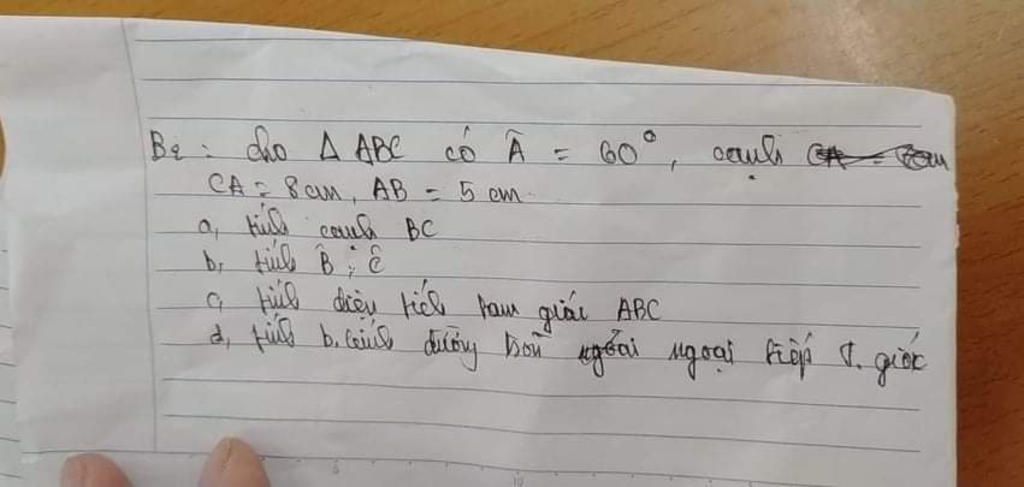 B2: cho Δ ABC có Â = 60°, cạnh
CA = 8 cm, AB = 5 cm
a, tính cạnh BC
b, tính B̂; Ĉ
c, tính diện tích tam giác ABC
d, tính b.kính đường tròn ngoại tiếp t.giác